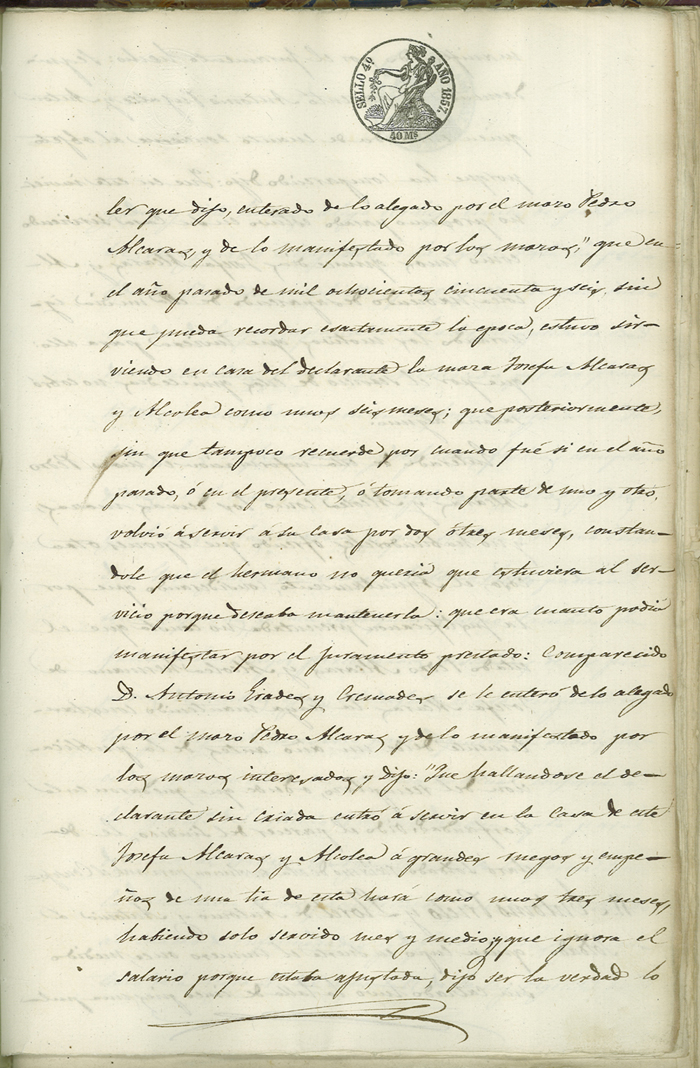 SELLO 4º AÑO 1857.
40 Ms
ler que dijo, enterado de lo alegado por el mozo Pedro
Alcaraz, y de lo manifestado por los mozos, "que en
el año pasado de mil ochocientos cincuenta y seis, sin
que pueda recordar esactamente la epoca, estuvo sir-
viendo en casa del declarante la moza Josefa Alcaraz
y Alcolea como unos seis meses; que posteriormente,
sin que tampoco recuerde por cuando fué si en el año
pasado, ó en el presente, ó tomando parte de uno y otro,
volvió á servir á su casa por dos ó tres meses, constan-
dole que el hermano no queria que estuviera al ser-
vicio porque deseaba mantenerla: que era cuanto podia
manifestar por el juramento prestado: Comparecido
D. Antonio Erades y Cremades se le enteró de lo alegado
por el mozo Pedro Alcaraz y de lo manifestado por
los mozos interesados y dijo: "Que hallandose el de-
clarante sin criada entró á servir en la casa de este
Josefa Alcaraz y Alcolea á grandes ruegos y empe-
ños de una tia de esta hará como unos tres meses,
habiendo solo servido mes y medio, y que ignora el
salario porque estaba ajustada, dijo ser la verdad lo